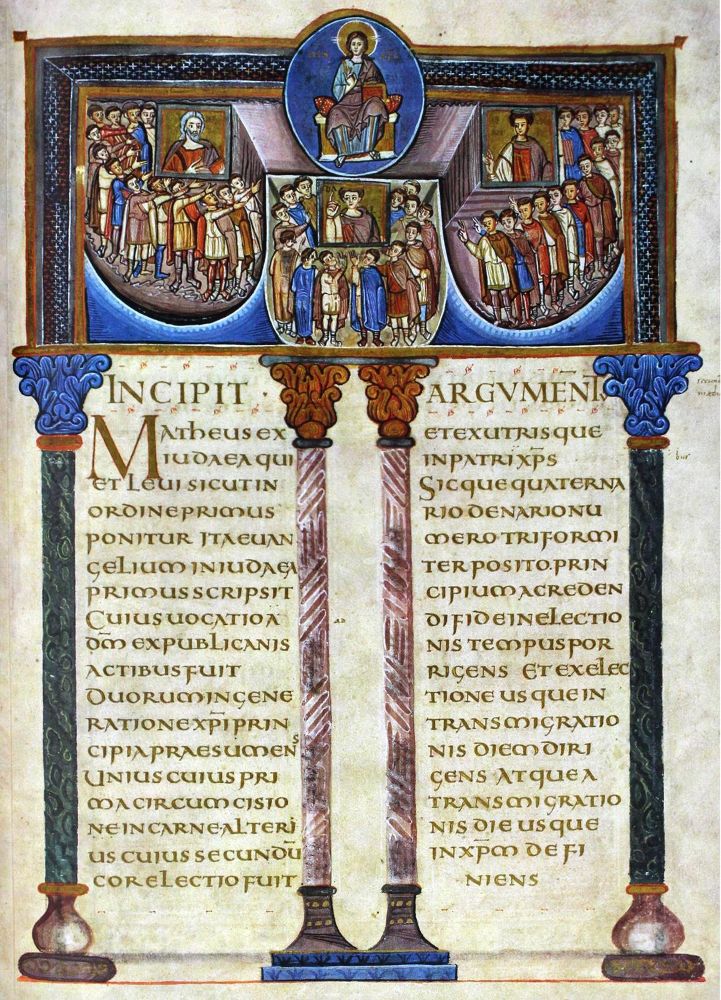 INCIPIT · ARGVMENT
MATHEUS EX
IUDAEA QUI
ET LEVI SICUT IN
ORDINE PRIMUS
PONITUR ITA EUAN
GELIUM IN IUDAEA
PRIMUS SCRIPSIT
CUIUS UOCATIO A
DM̄ EX PUBLICANIS
ACTIBUS FUIT
DUORUM IN GENE
RATIONE XP̄I PRIN
CIPIA PRAESUMENS
UNIUS CUIUS PRI
MA CIRCUMCISIO
NE IN CARNE ALTERI
US CUIUS SECUNDŪ
COR ELECTIO FUIT
ET EX UTRISQUE
IN PATRI XP̄S
SICQUE QUATERNA
RIO DENARIO NU
MERO TRIFORMI
TER POSITO. PRIN
CIPIUM A CREDEN
DI FIDE IN ELECTIO
NIS TEMPUS POR
RIGENS ET EX ELEC
TIONE USQUE IN
TRANSMIGRATIO
NIS DIEM DIRI
GENS ATQUE A
TRANSMIGRATIO
NIS DIE USQUE
IN XP̄M DEFI
NIENS